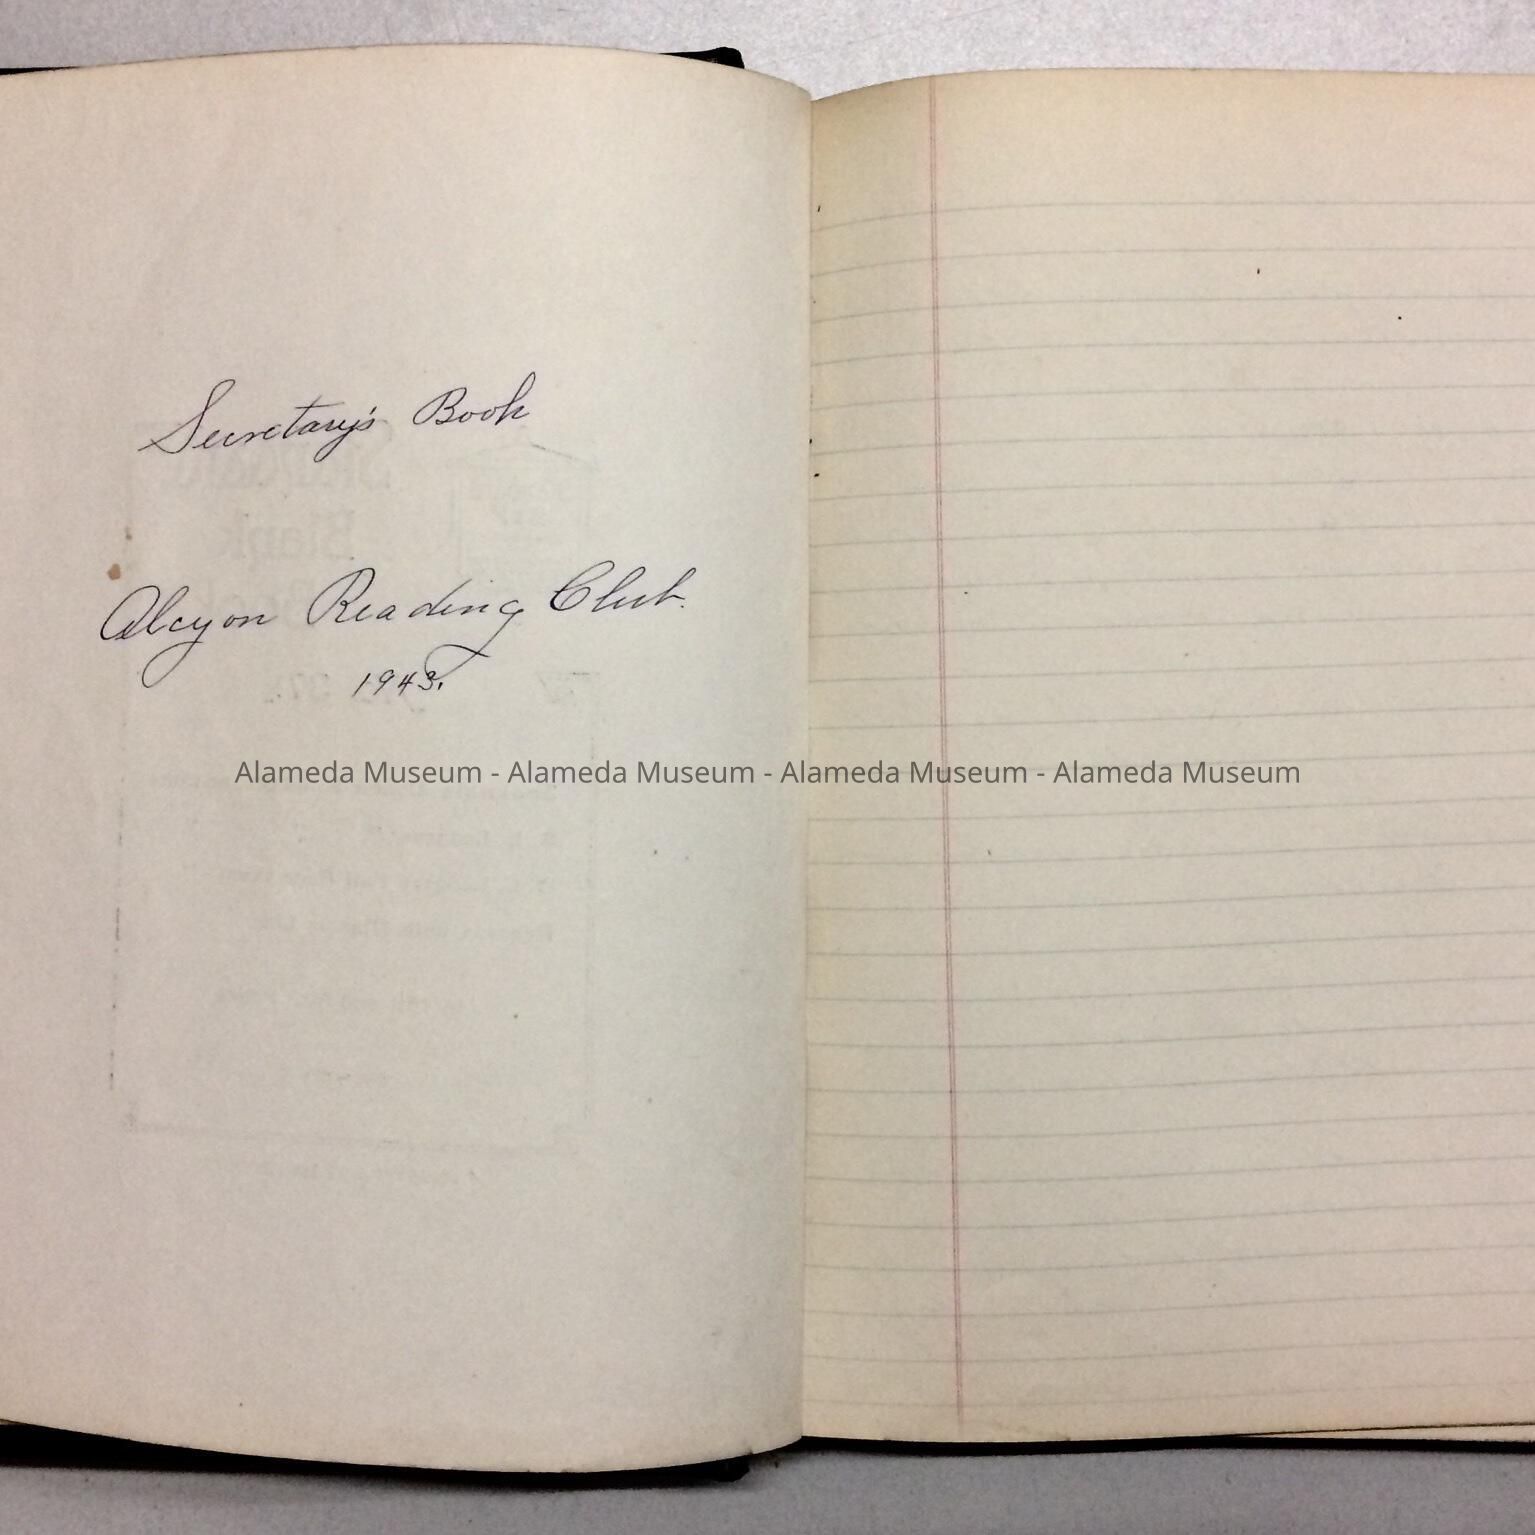 Secretary's Book
Alcyon Reading Club.
1943.
Alameda Museum - Alameda Museum - Alameda Museum - Alameda Museum